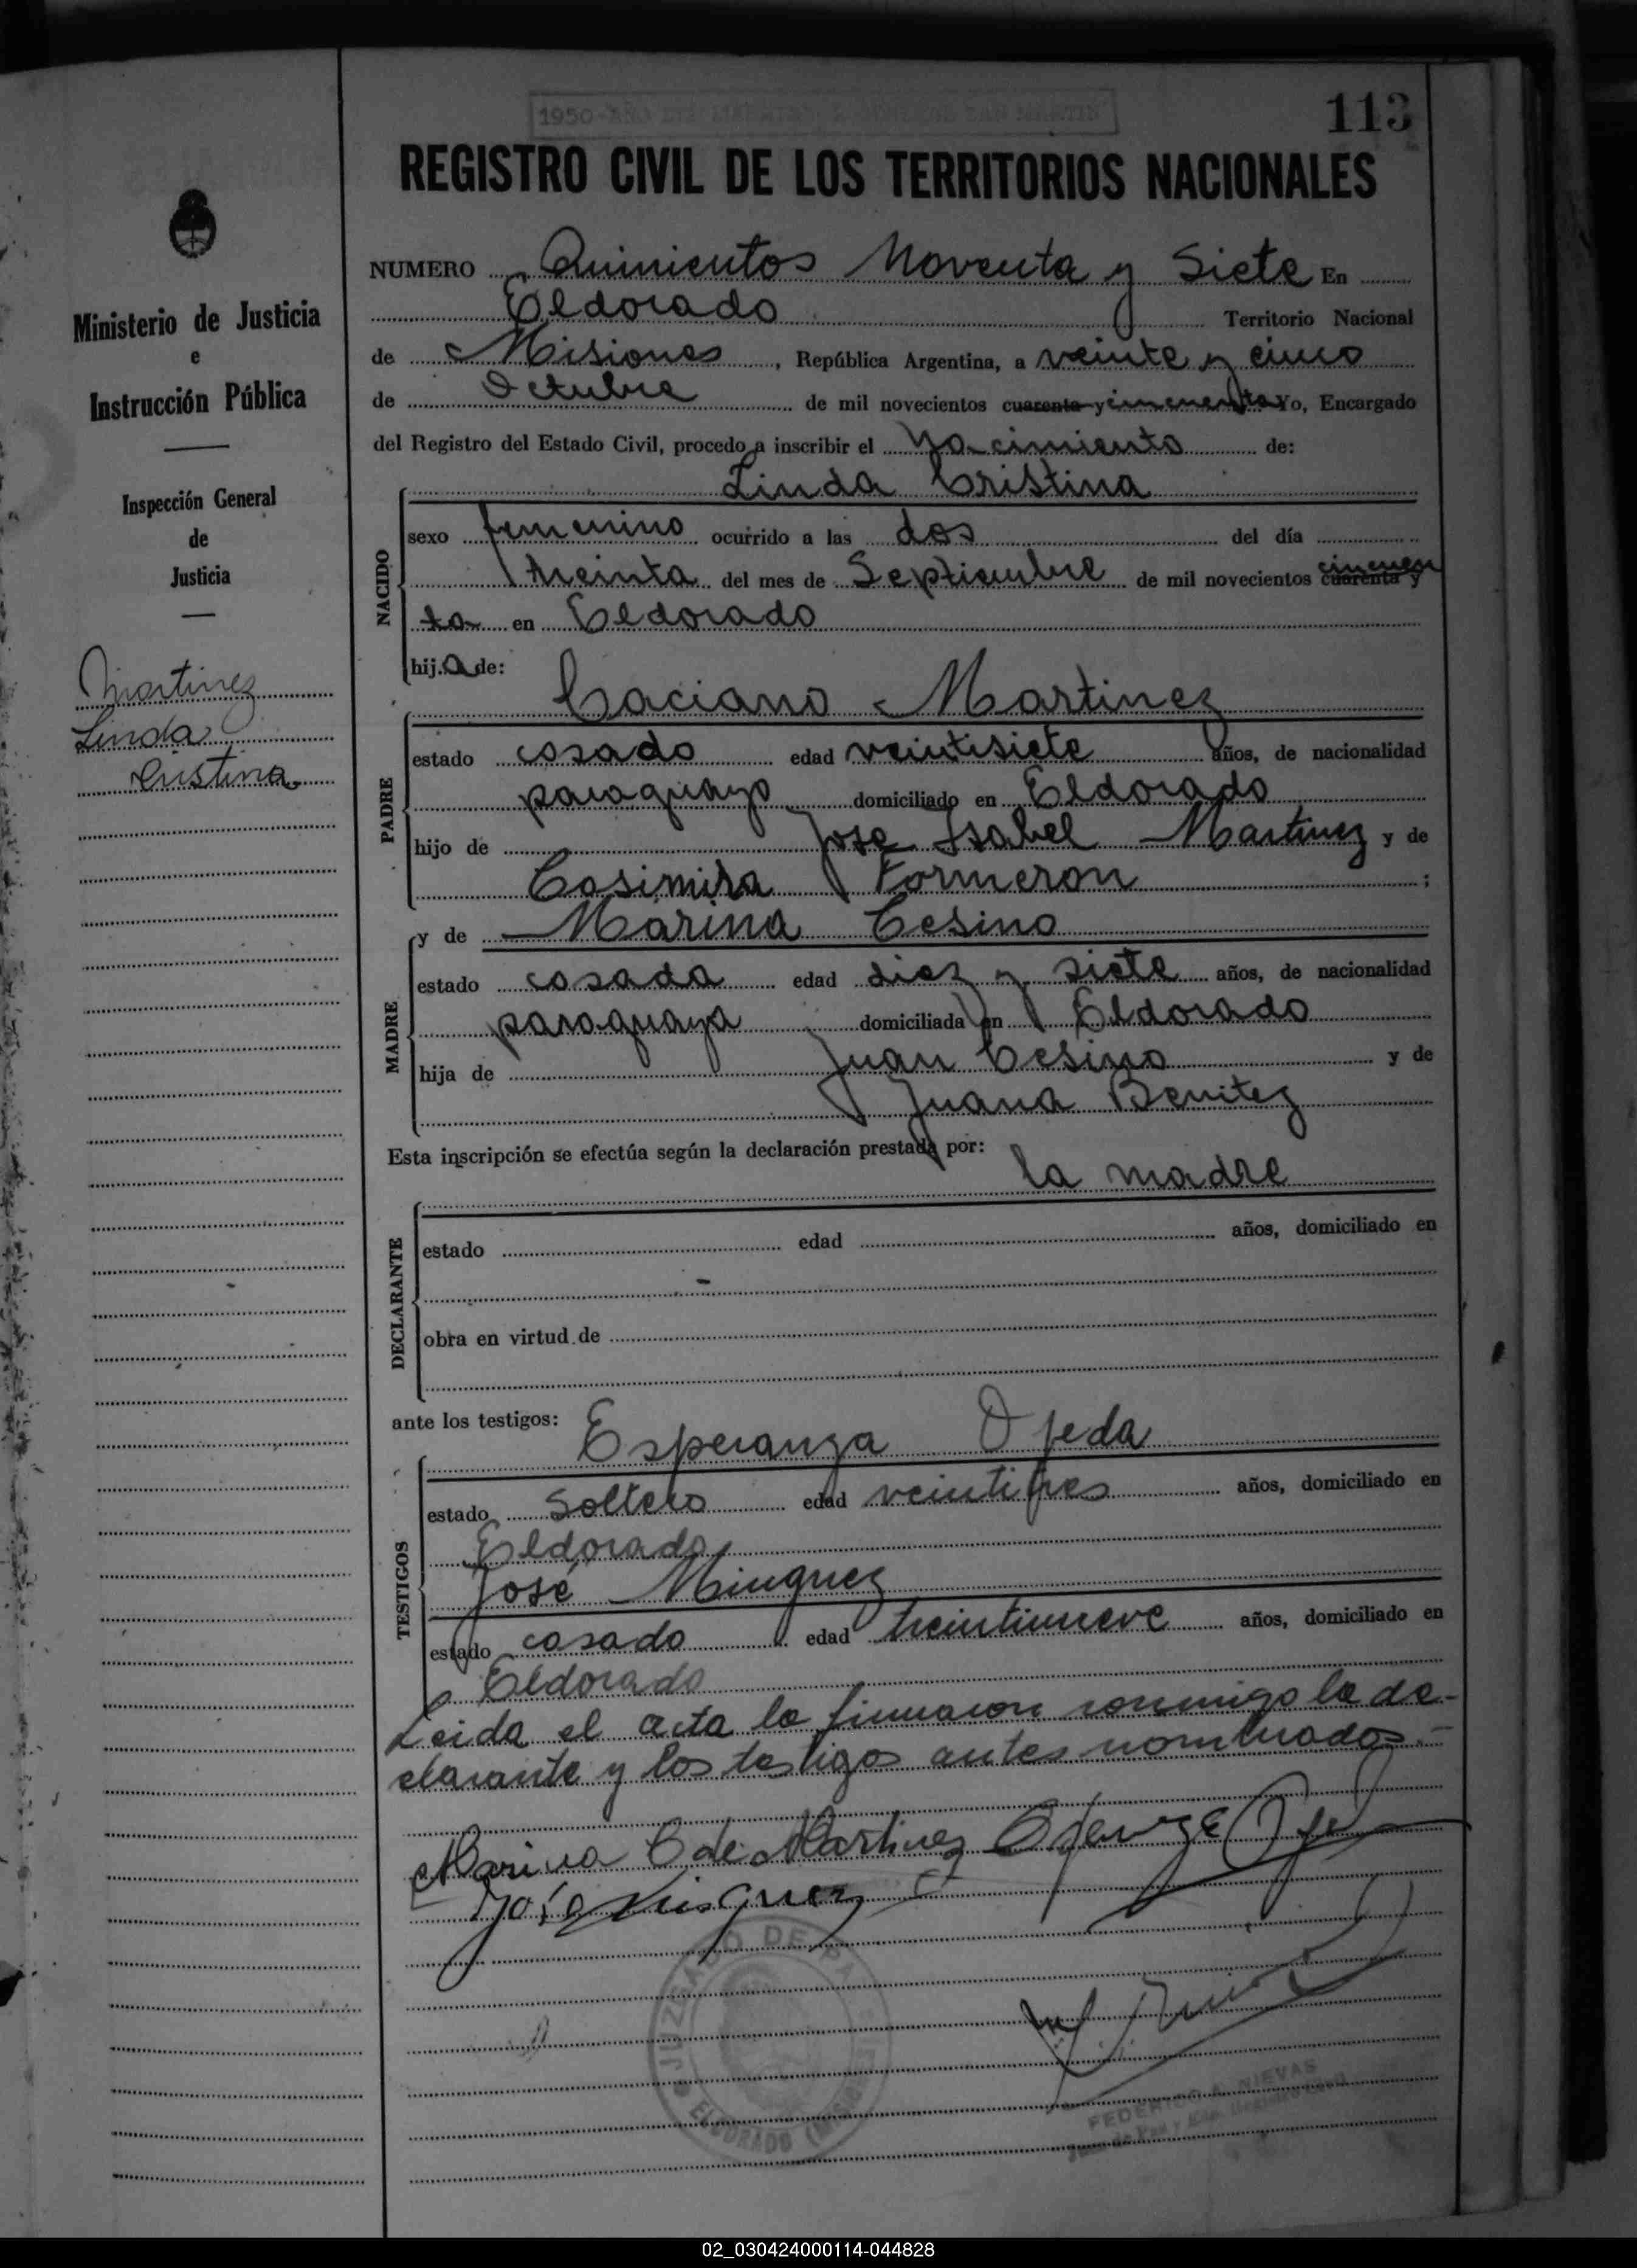 1950 - AÑO DEL LIBERTADOR GENERAL SAN MARTIN
113
REGISTRO CIVIL DE LOS TERRITORIOS NACIONALES
Ministerio de Justicia
e
Instrucción Pública
Inspección General
de
Justicia
Martinez
Linda
Cristina
NUMERO Quinientos Noventa y Siete En
Eldorado Territorio Nacional
de Misiones, República Argentina, a veinte y cinco
de Octubre de mil novecientos cuarenta y cincuenta Yo, Encargado
del Registro del Estado Civil, procedo a inscribir el Nacimiento de:
Linda Cristina
NACIDO
sexo femenino ocurrido a las dos del día
treinta del mes de Septiembre de mil novecientos cuarenta y cincuen
ta en Eldorado
hija de:
Caciano Martinez
PADRE
estado casado edad veintisiete años, de nacionalidad
paraguayo domiciliado en Eldorado
hijo de Jose Isabel Martinez y de
Casimira Formeron ;
y de Marina Cesino
MADRE
estado casada edad diez y siete años, de nacionalidad
paraguaya domiciliada en Eldorado
hija de Juan Cesino y de
Juana Benitez
Esta inscripción se efectúa según la declaración prestada por:
la madre
DECLARANTE
estado edad años, domiciliado en
obra en virtud de
ante los testigos:
Esperanza Ojeda
TESTIGOS
estado Soltero edad veintitres años, domiciliado en
Eldorado
José Minguez
estado casado edad treintinueve años, domiciliado en
Eldorado
Leida el acta la firmaron conmigo la de-
clarante y los testigos antes nombrados.-
Marina C de Martinez
José Minguez
JUZGADO DE PAZ
ELDORADO (MISIONES)
FEDERICO A. NIEVAS
Juez de Paz y Enc. Registro Civil
02_030424000114-044828